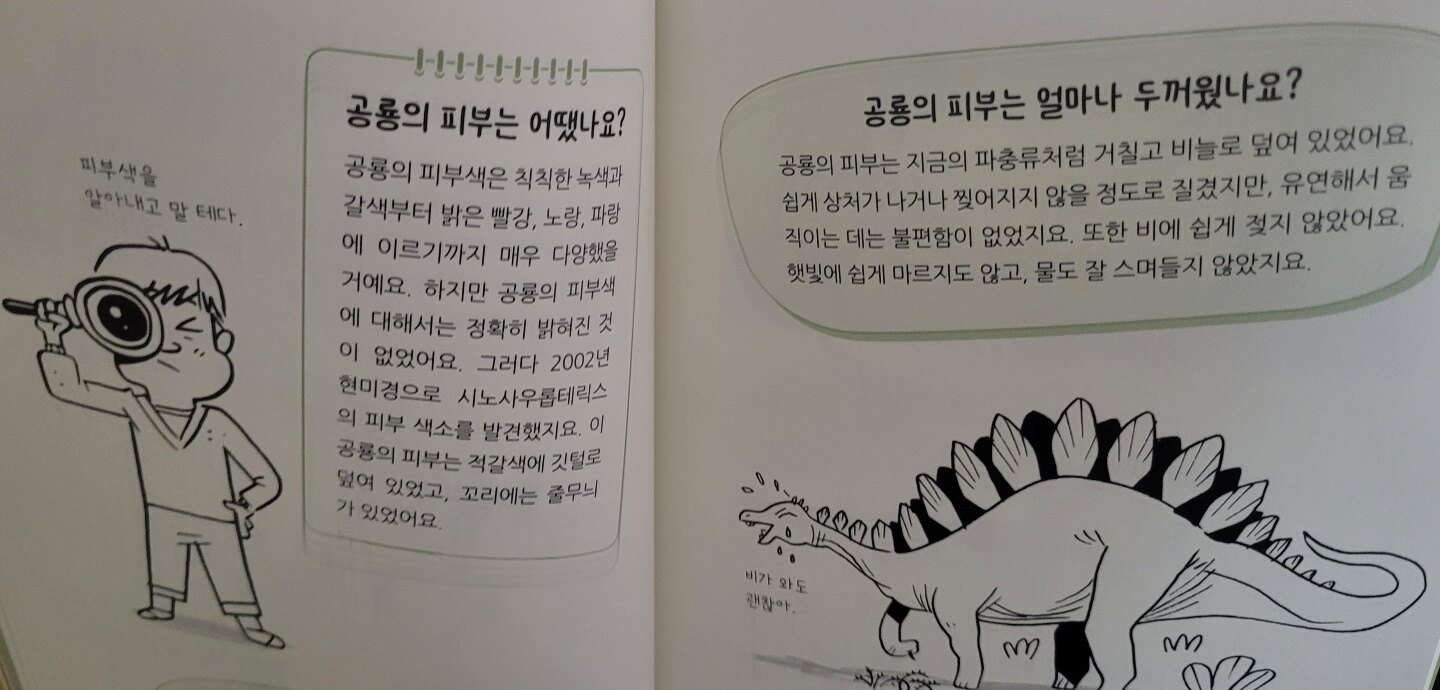 피부색을
알아내고 말 테다.
공룡의 피부는 어땠나요?
공룡의 피부색은 칙칙한 녹색과
갈색부터 밝은 빨강, 노랑, 파랑
에 이르기까지 매우 다양했을
거예요. 하지만 공룡의 피부색
에 대해서는 정확히 밝혀진 것
이 없었어요. 그러다 2002년
현미경으로 시노사우롭테릭스
의 피부 색소를 발견했지요. 이
공룡의 피부는 적갈색에 깃털로
덮여 있었고, 꼬리에는 줄무늬
가 있었어요.
공룡의 피부는 얼마나 두꺼웠나요?
공룡의 피부는 지금의 파충류처럼 거칠고 비늘로 덮여 있었어요.
쉽게 상처가 나거나 찢어지지 않을 정도로 질겼지만, 유연해서 움
직이는 데는 불편함이 없었지요. 또한 비에 쉽게 젖지 않았어요.
햇빛에 쉽게 마르지도 않고, 물도 잘 스며들지 않았지요.
비가 와도
괜찮아.